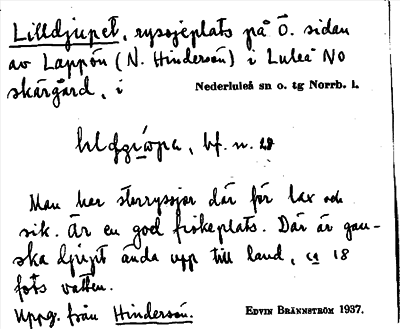 Lilldjupet, ryssjeplats på Ö. sidan
av Lappön (N. Hindersön) i Luleå NO
skärgård, i Nederluleå sn o. tg Norrb. l.
bf. n.
Man har storryssjor där för lax och
sik. Är en god fiskeplats. Där är gan-
ska djupt ända upp till land, ca 18
fots vatten.
Uppg. från Hindersön. EDVIN BRÄNNSTRÖM 1937.